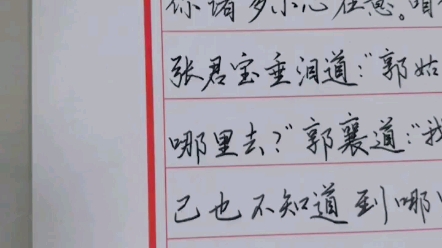 你诸多小心在意。咱
张君宝垂泪道：“郭姑
哪里去？”郭襄道：“我
己也不知道到哪